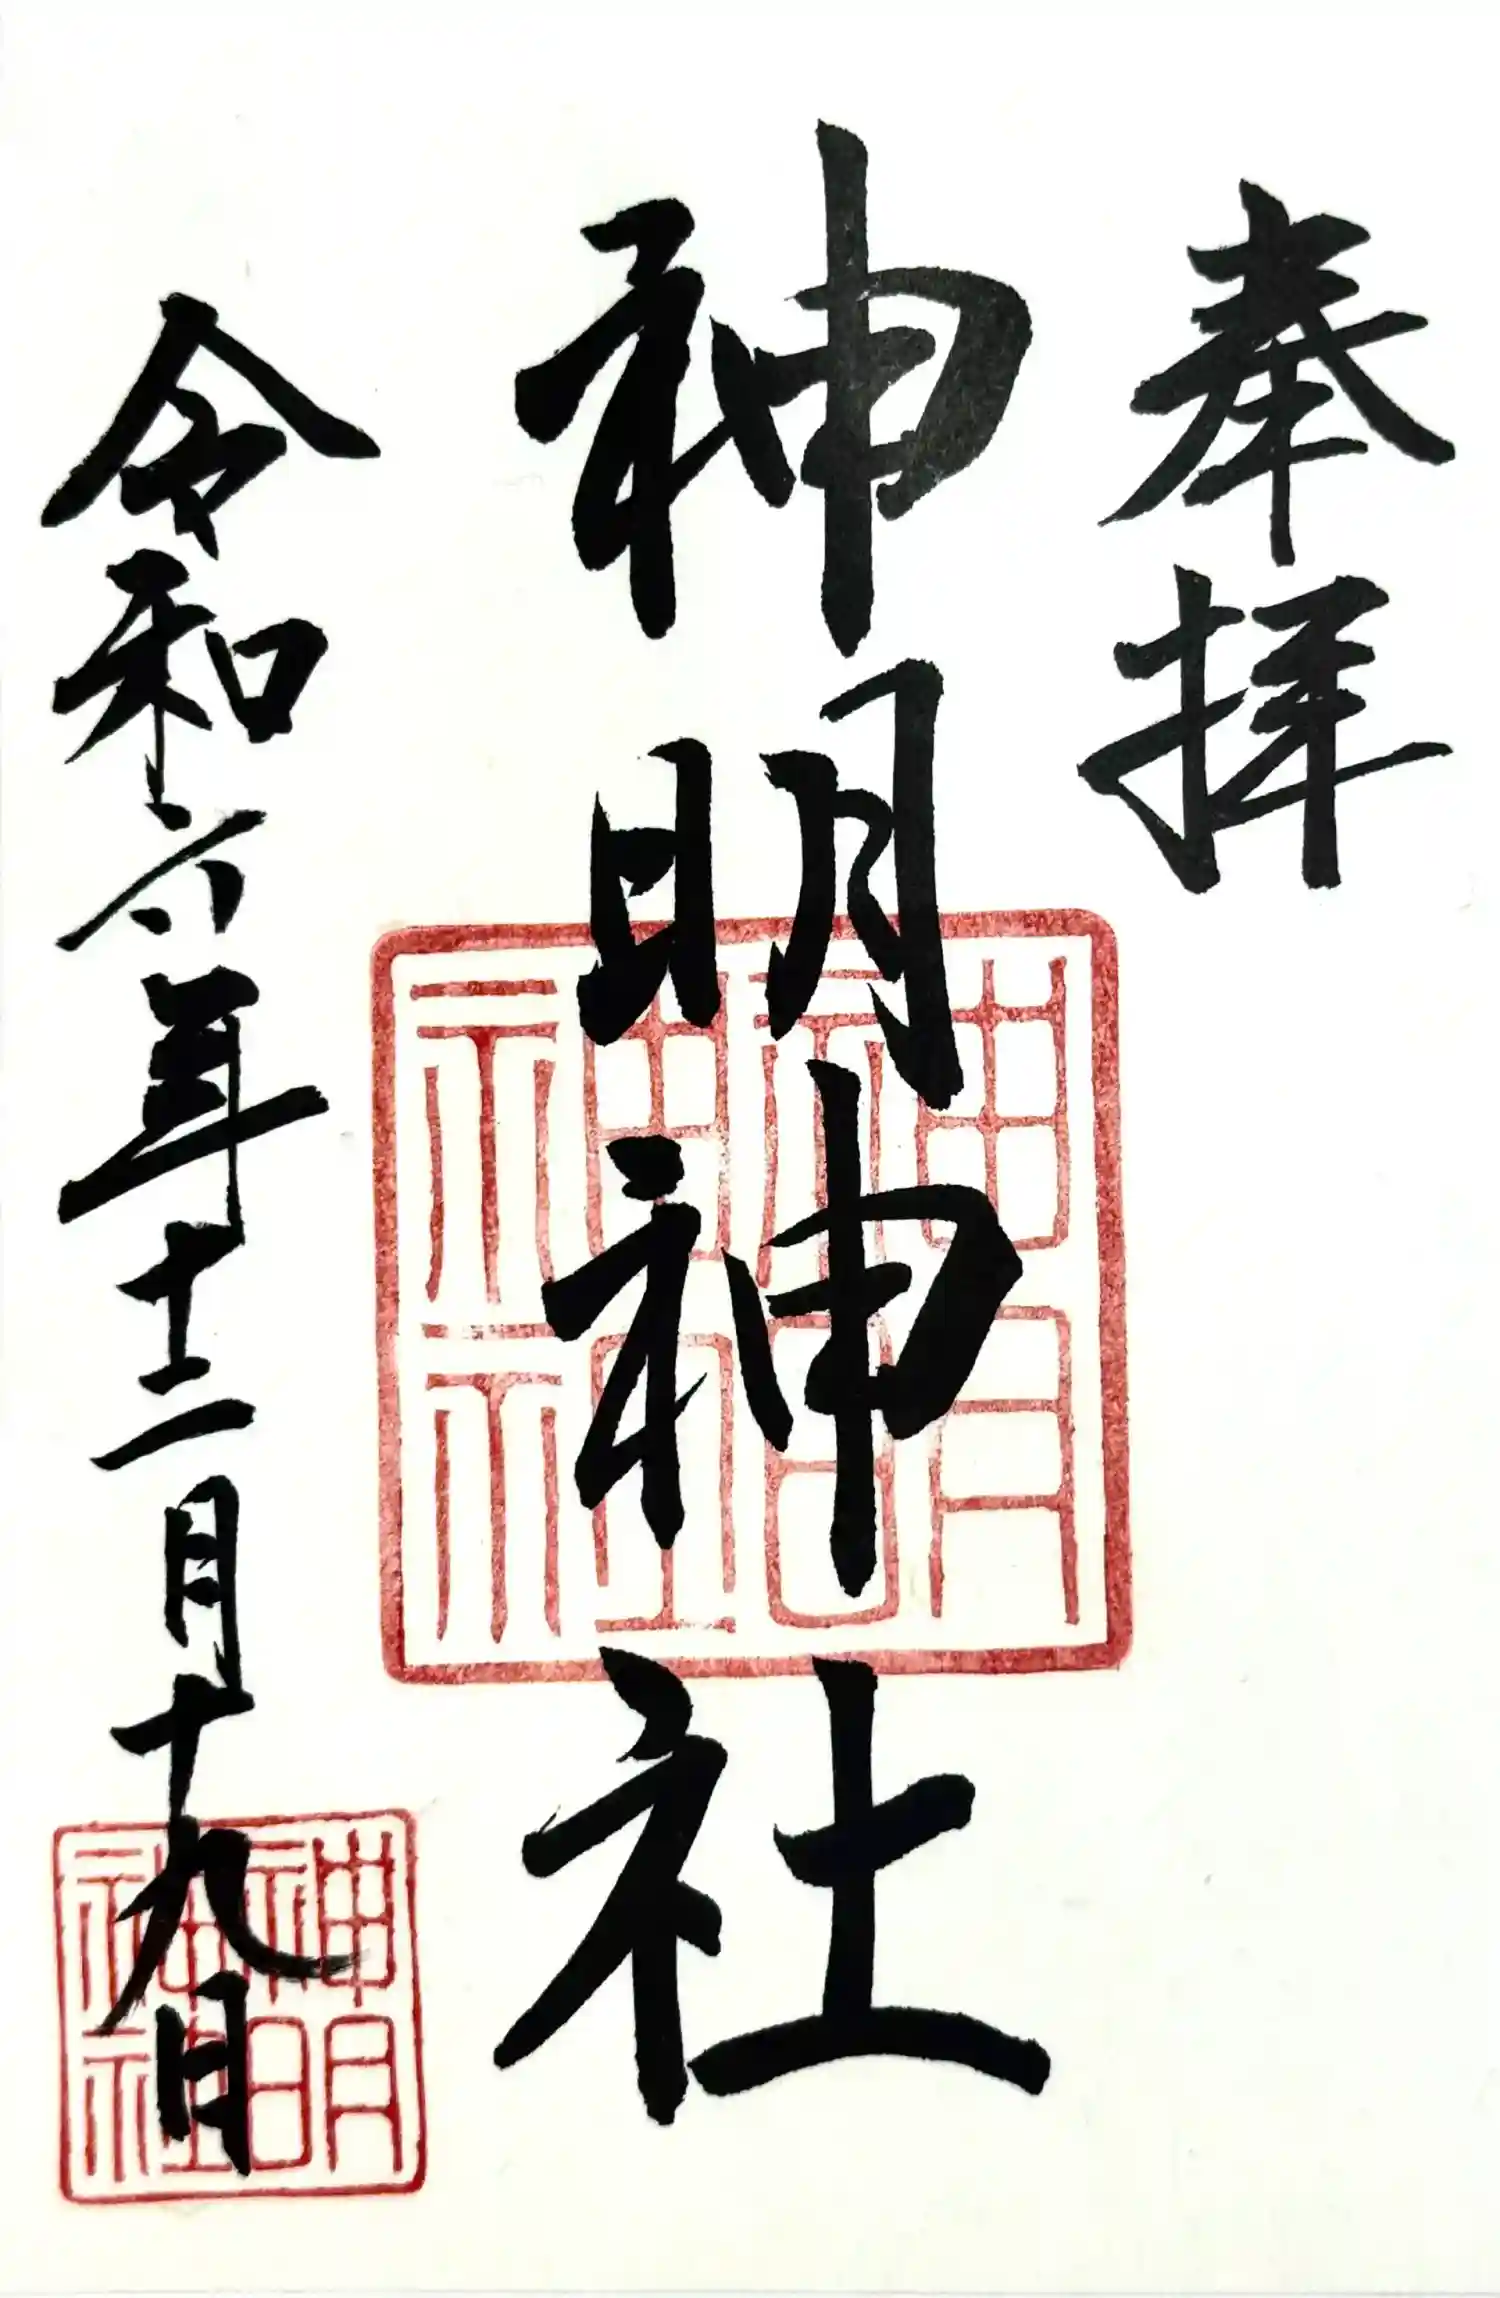 奉拝
神明神社
令和六年十二月十九日
神明神社
神明神社